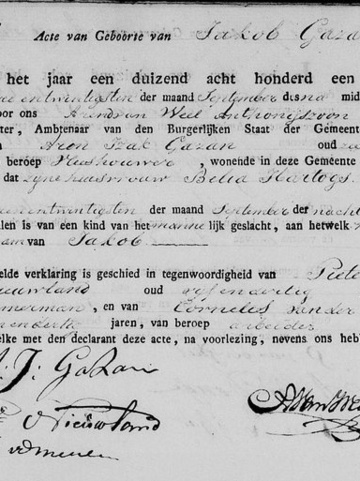 Acte van Geboorte van Jakob Gazan
het jaar een duizend acht honderd een
entwintigsten der maand September des na mid
oor ons Arend van Weel Anthonijszoon
ter, Ambtenaar van den Burgerlijken Staat der Gemeent
Aron Izak Gazan oud
beroep Vleeshouwer, wonende in deze Gemeente
dat zyne huisvrouw Belia Hartogs
entwintigsten der maand September der nacht
len is van een kind van het mannelijk geslacht, aan hetwelk
aam van Jakob
elde verklaring is geschied in tegenwoordigheid van Piete
ieuwland oud vyfendertig
immerman, en van Cornelis van der
jaren, van beroep arbeider
elke met den declarant deze acte, na voorlezing, nevens ons heb
A: J: Gazan
Nieuwland